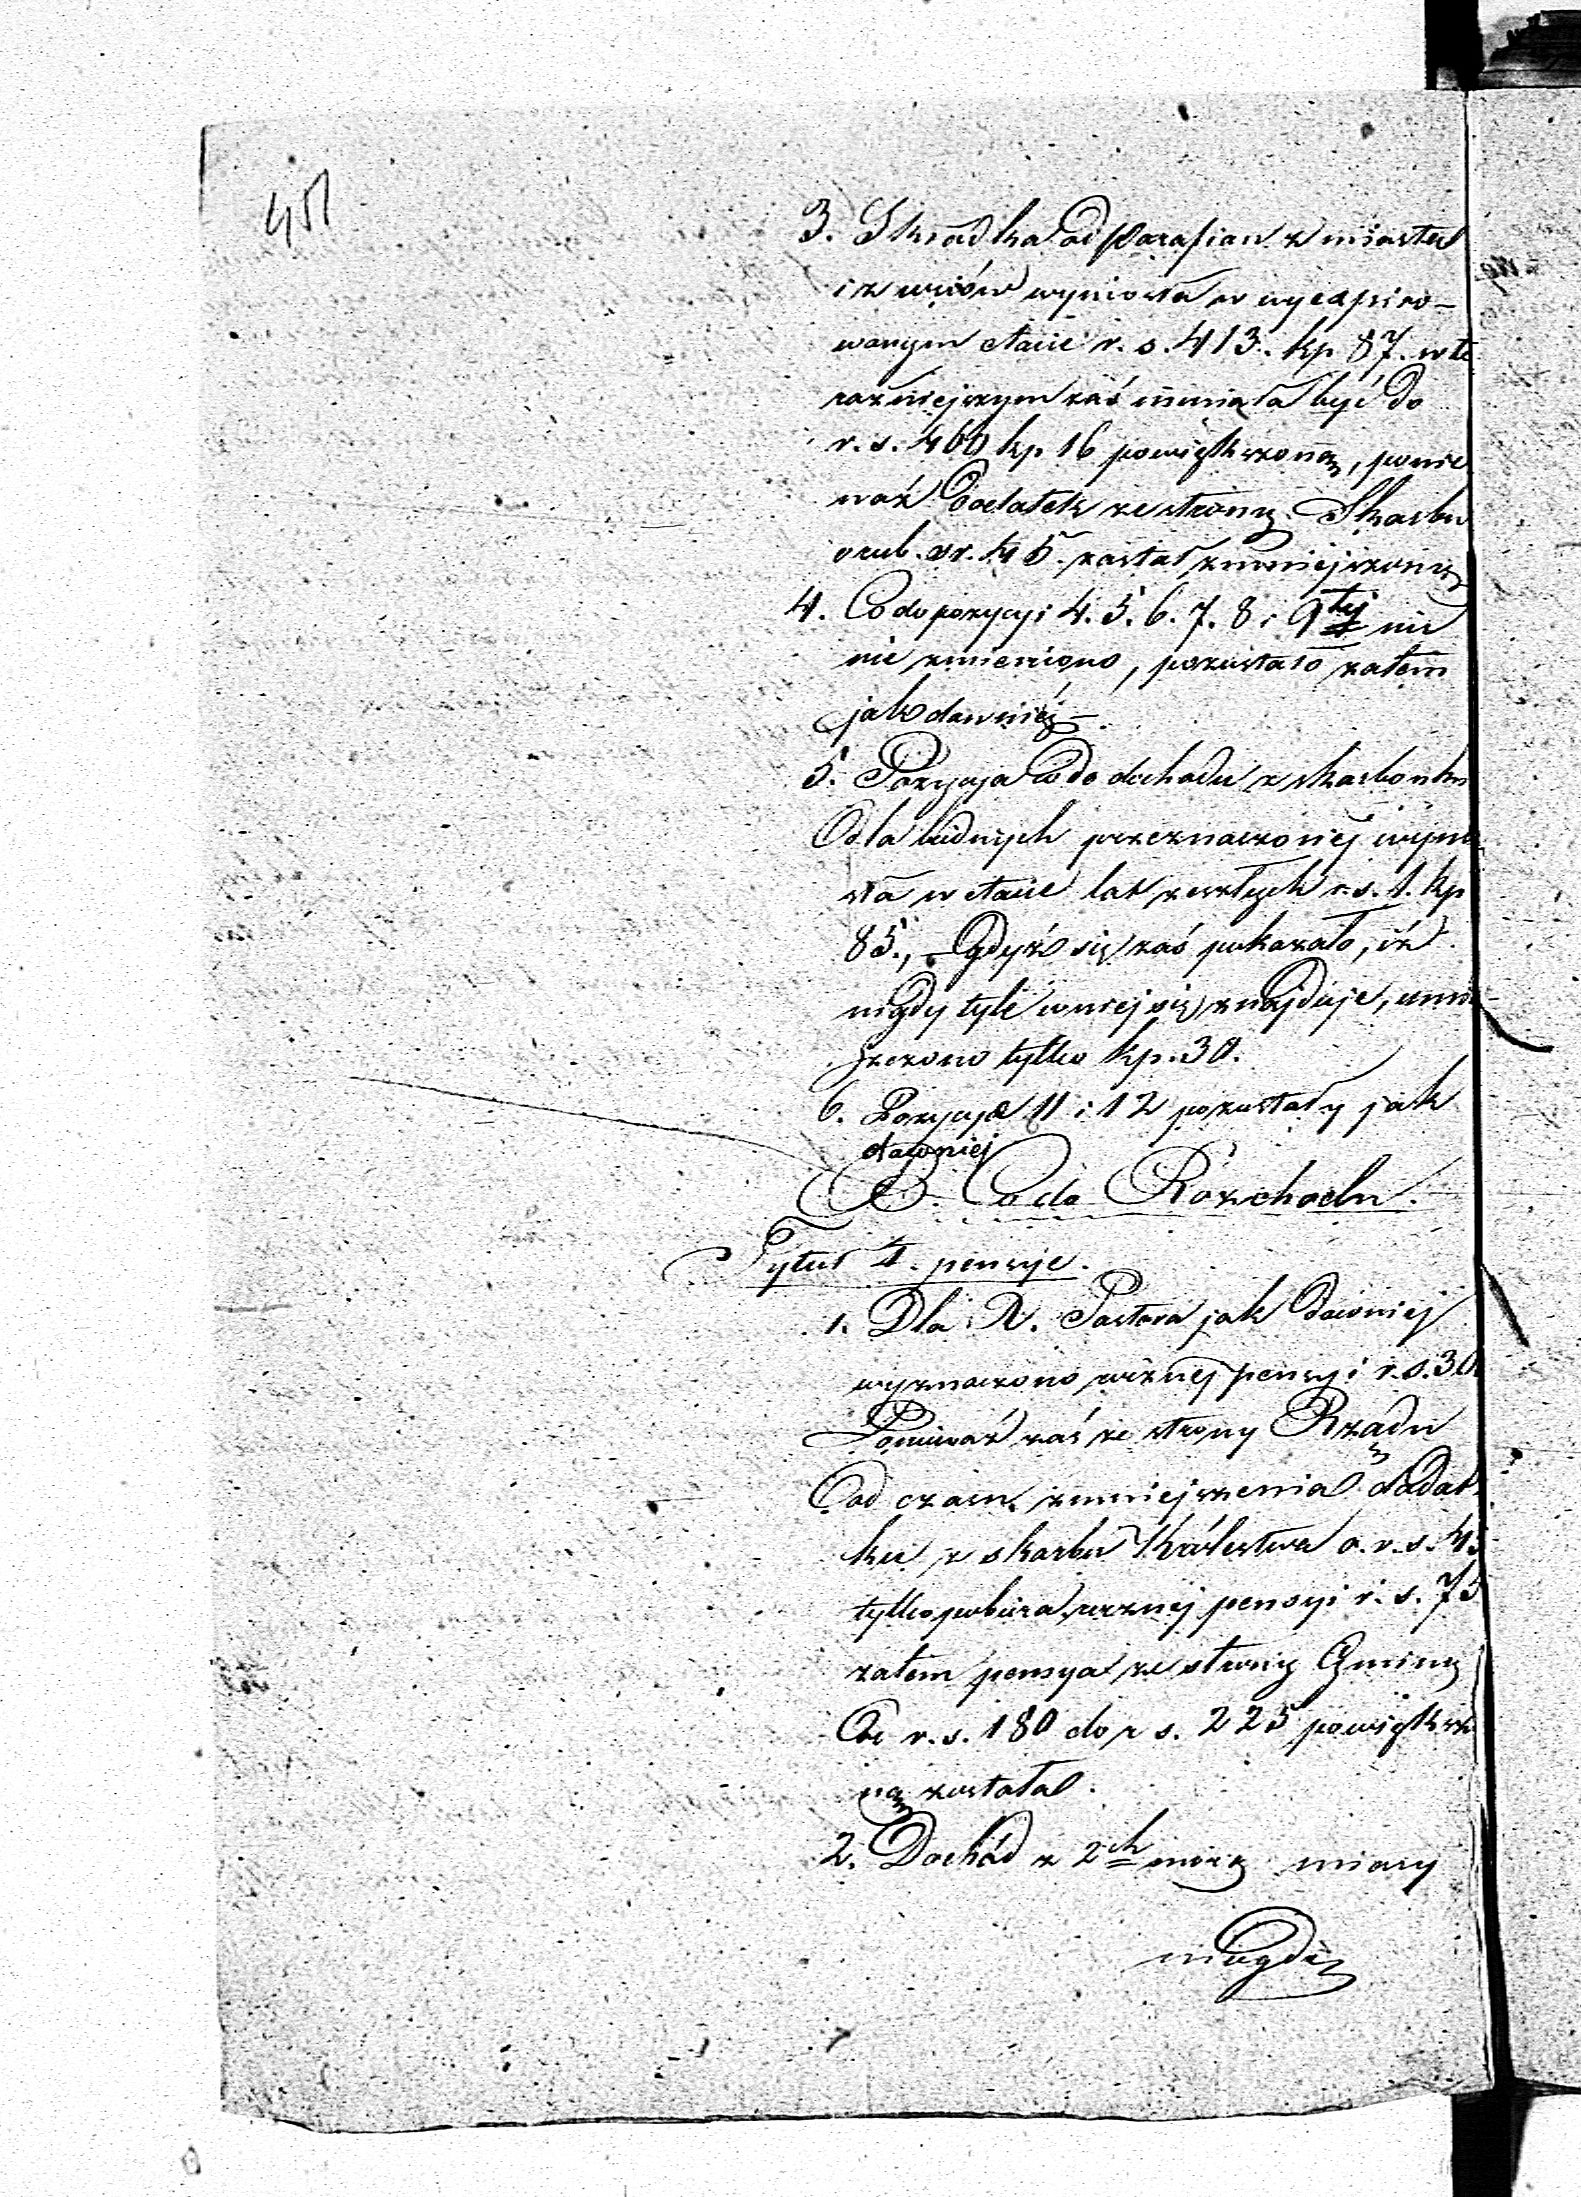 451
3. Składka od Parafian z miasta
i z wsiów wyniosła w wyexpiro-
wanym etacie r. s. 413. kp 87. w te
raźniejszym zaś musiała być do
r. s. 460 kp 16 powiększoną, ponie
waż Dodatek ze strony Skarbu
o rub. sr. 45. został zmniejszony
4. Co do pozycyi 4. 5. 6. 7. 8 i 9tej nic
nie zmieniono, pozostało zatem
jak dawniej –
5. Pozycyja co do dochodu z skarbonki
dla biednych przeznaczonej wynio
sła w etacie lat zeszłych r. s. 1. kp
85., – Gdyż się zaś pokazało, iż
nigdy tyle w niej się znajduje, umie-
szczono tylko kp. 30.
6. Pozycyje 11 i 12 pozostały jak
dawniej
B. Co do Rozchodu.
Tytuł I. pensyje.
1. Dla X. Pastora jak dawniej
wyznaczono rocznej pensyi r. s. 30
Ponieważ zaś ze strony Rządu
Od czasu zmniejszenia dodat
ku z skarbu Królestwa o r. s. 45
tylko pobiera rocznej pensyi r. s. 75
zatem pensya ze strony Gminy
Od r. s. 180 do r s. 225 powiększo
ną została.
2. Dochód z 2ch mórg miary